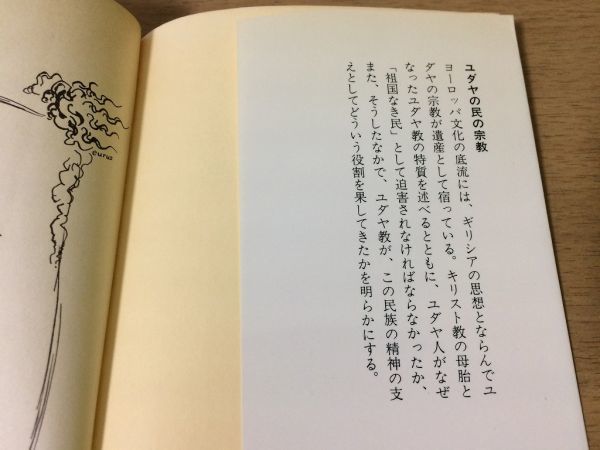 ユダヤの民の宗教
ヨーロッパ文化の底流には、ギリシアの思想とならんでユ
ダヤの宗教が遺産として宿っている。キリスト教の母胎と
なったユダヤ教の特質を述べるとともに、ユダヤ人がなぜ
「祖国なき民」として迫害されなければならなかったか、
また、そうしたなかで、ユダヤ教が、この民族の精神の支
えとしてどういう役割を果してきたかを明らかにする。
eurus